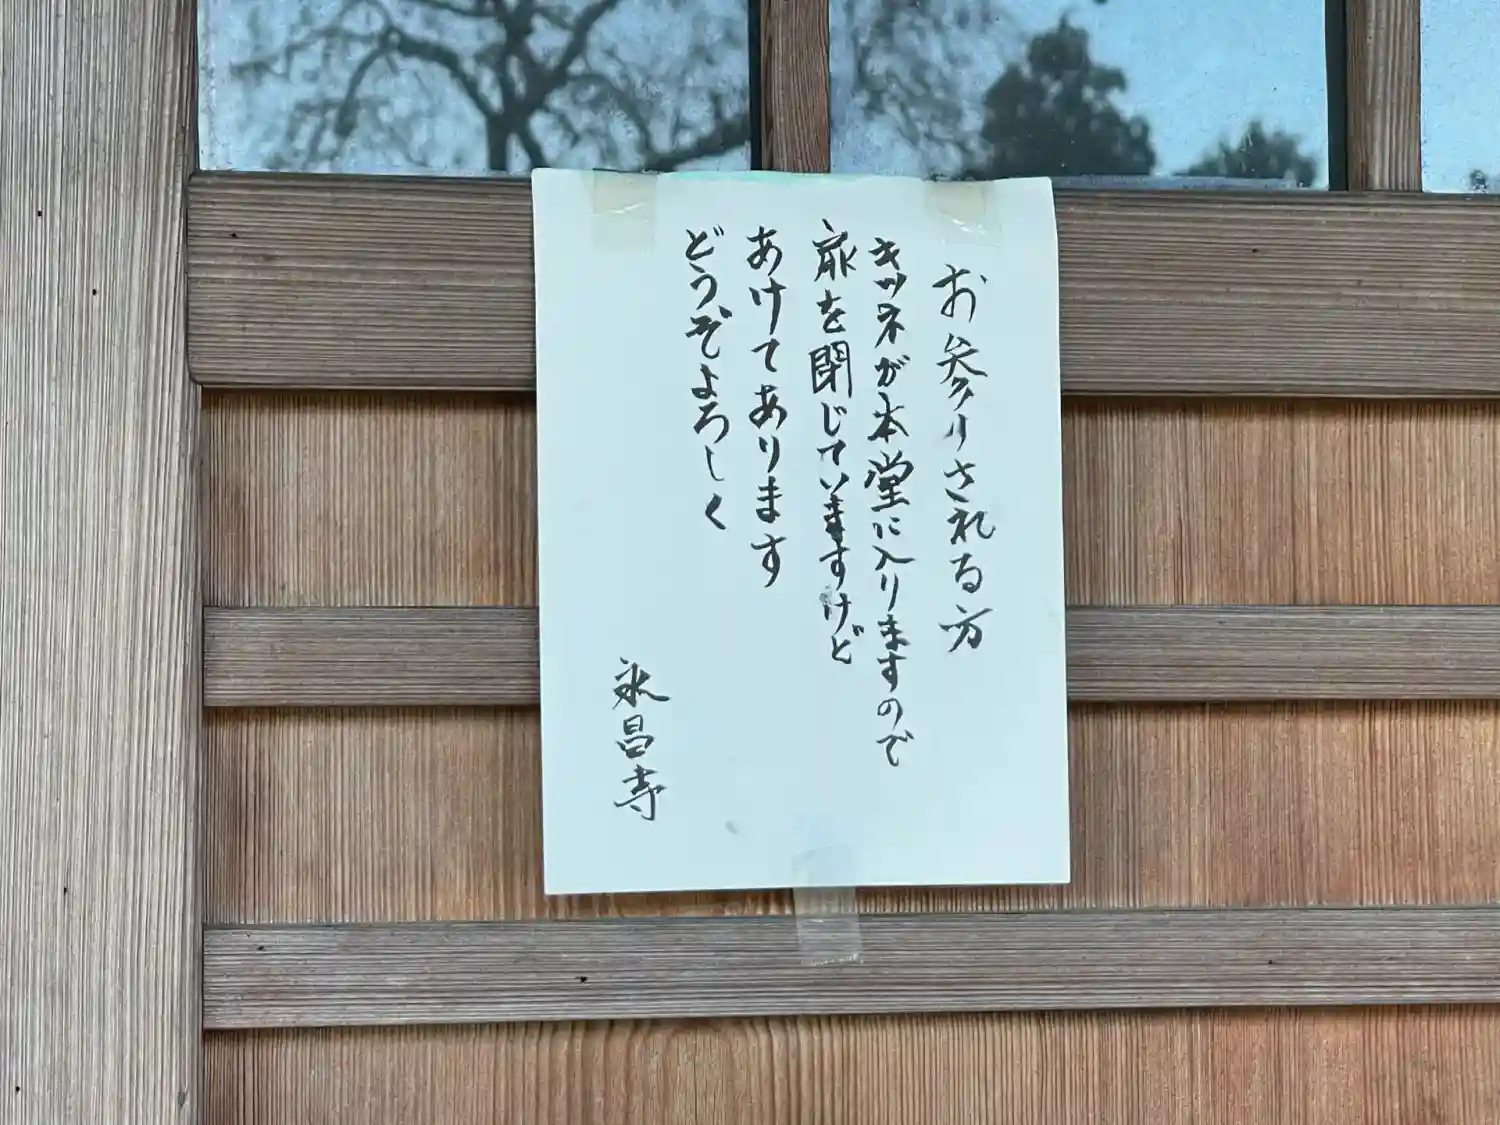 お参りされる方
キツネが本堂に入りますので
扉を閉じていますけど
あけてあります
どうぞよろしく
永昌寺